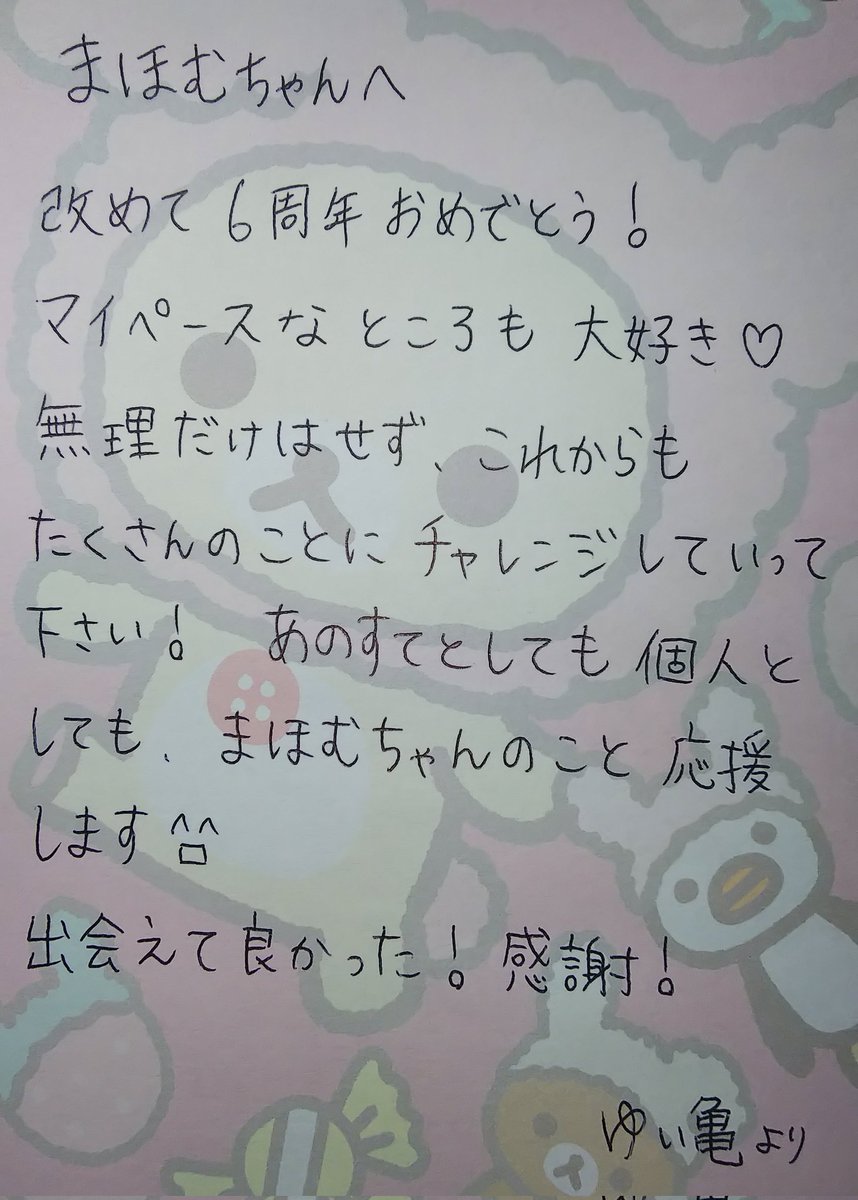 まほむちゃんへ
改めて 6周年 おめでとう!
マイペースな ところも 大好き♡
無理だけはせず、これからも
たくさんのことに チャレンジしていって
下さい! あのすてとしても 個人と
しても、まほむちゃんのこと 応援
します ^^
出会えて良かった! 感謝!
ゆい亀より